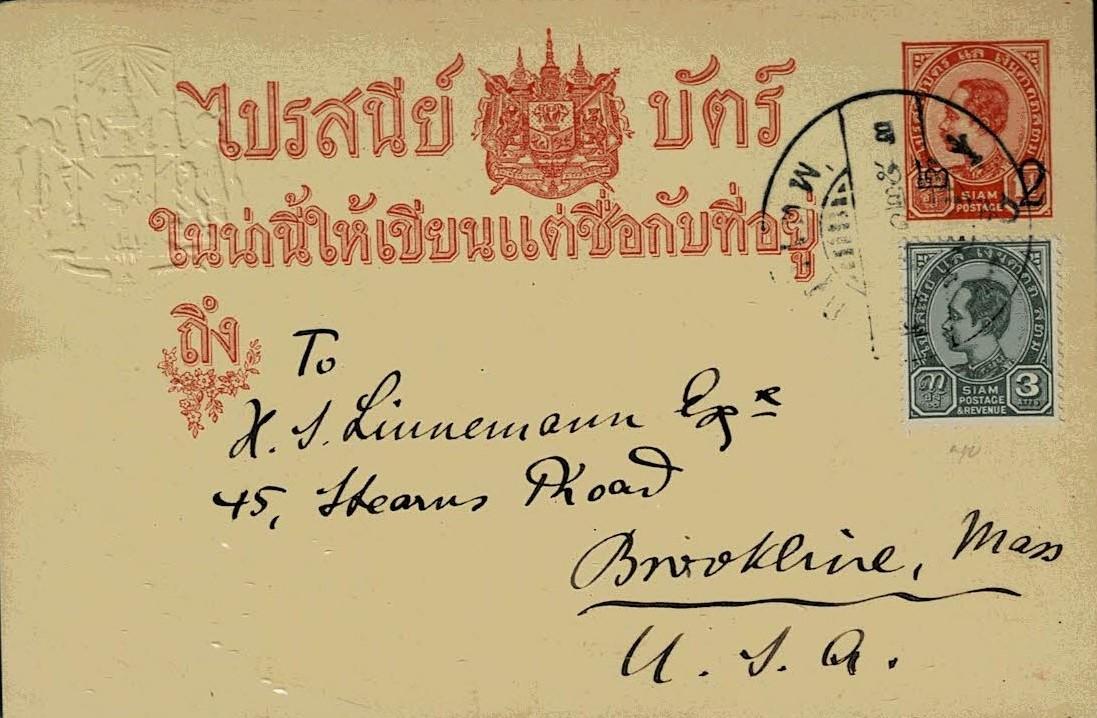 ไปรสนีย์ บัตร์
ในน่านี้ให้เขียนแต่ชื่อกับที่อยู่
ถึง
2
SIAM
POSTAGE
SIAM
POSTAGE
& REVENUE
3
ATTS
To
H. S. Linnemann Esqr
45, Stearns Road
Brookline, Mass
U. S. A.